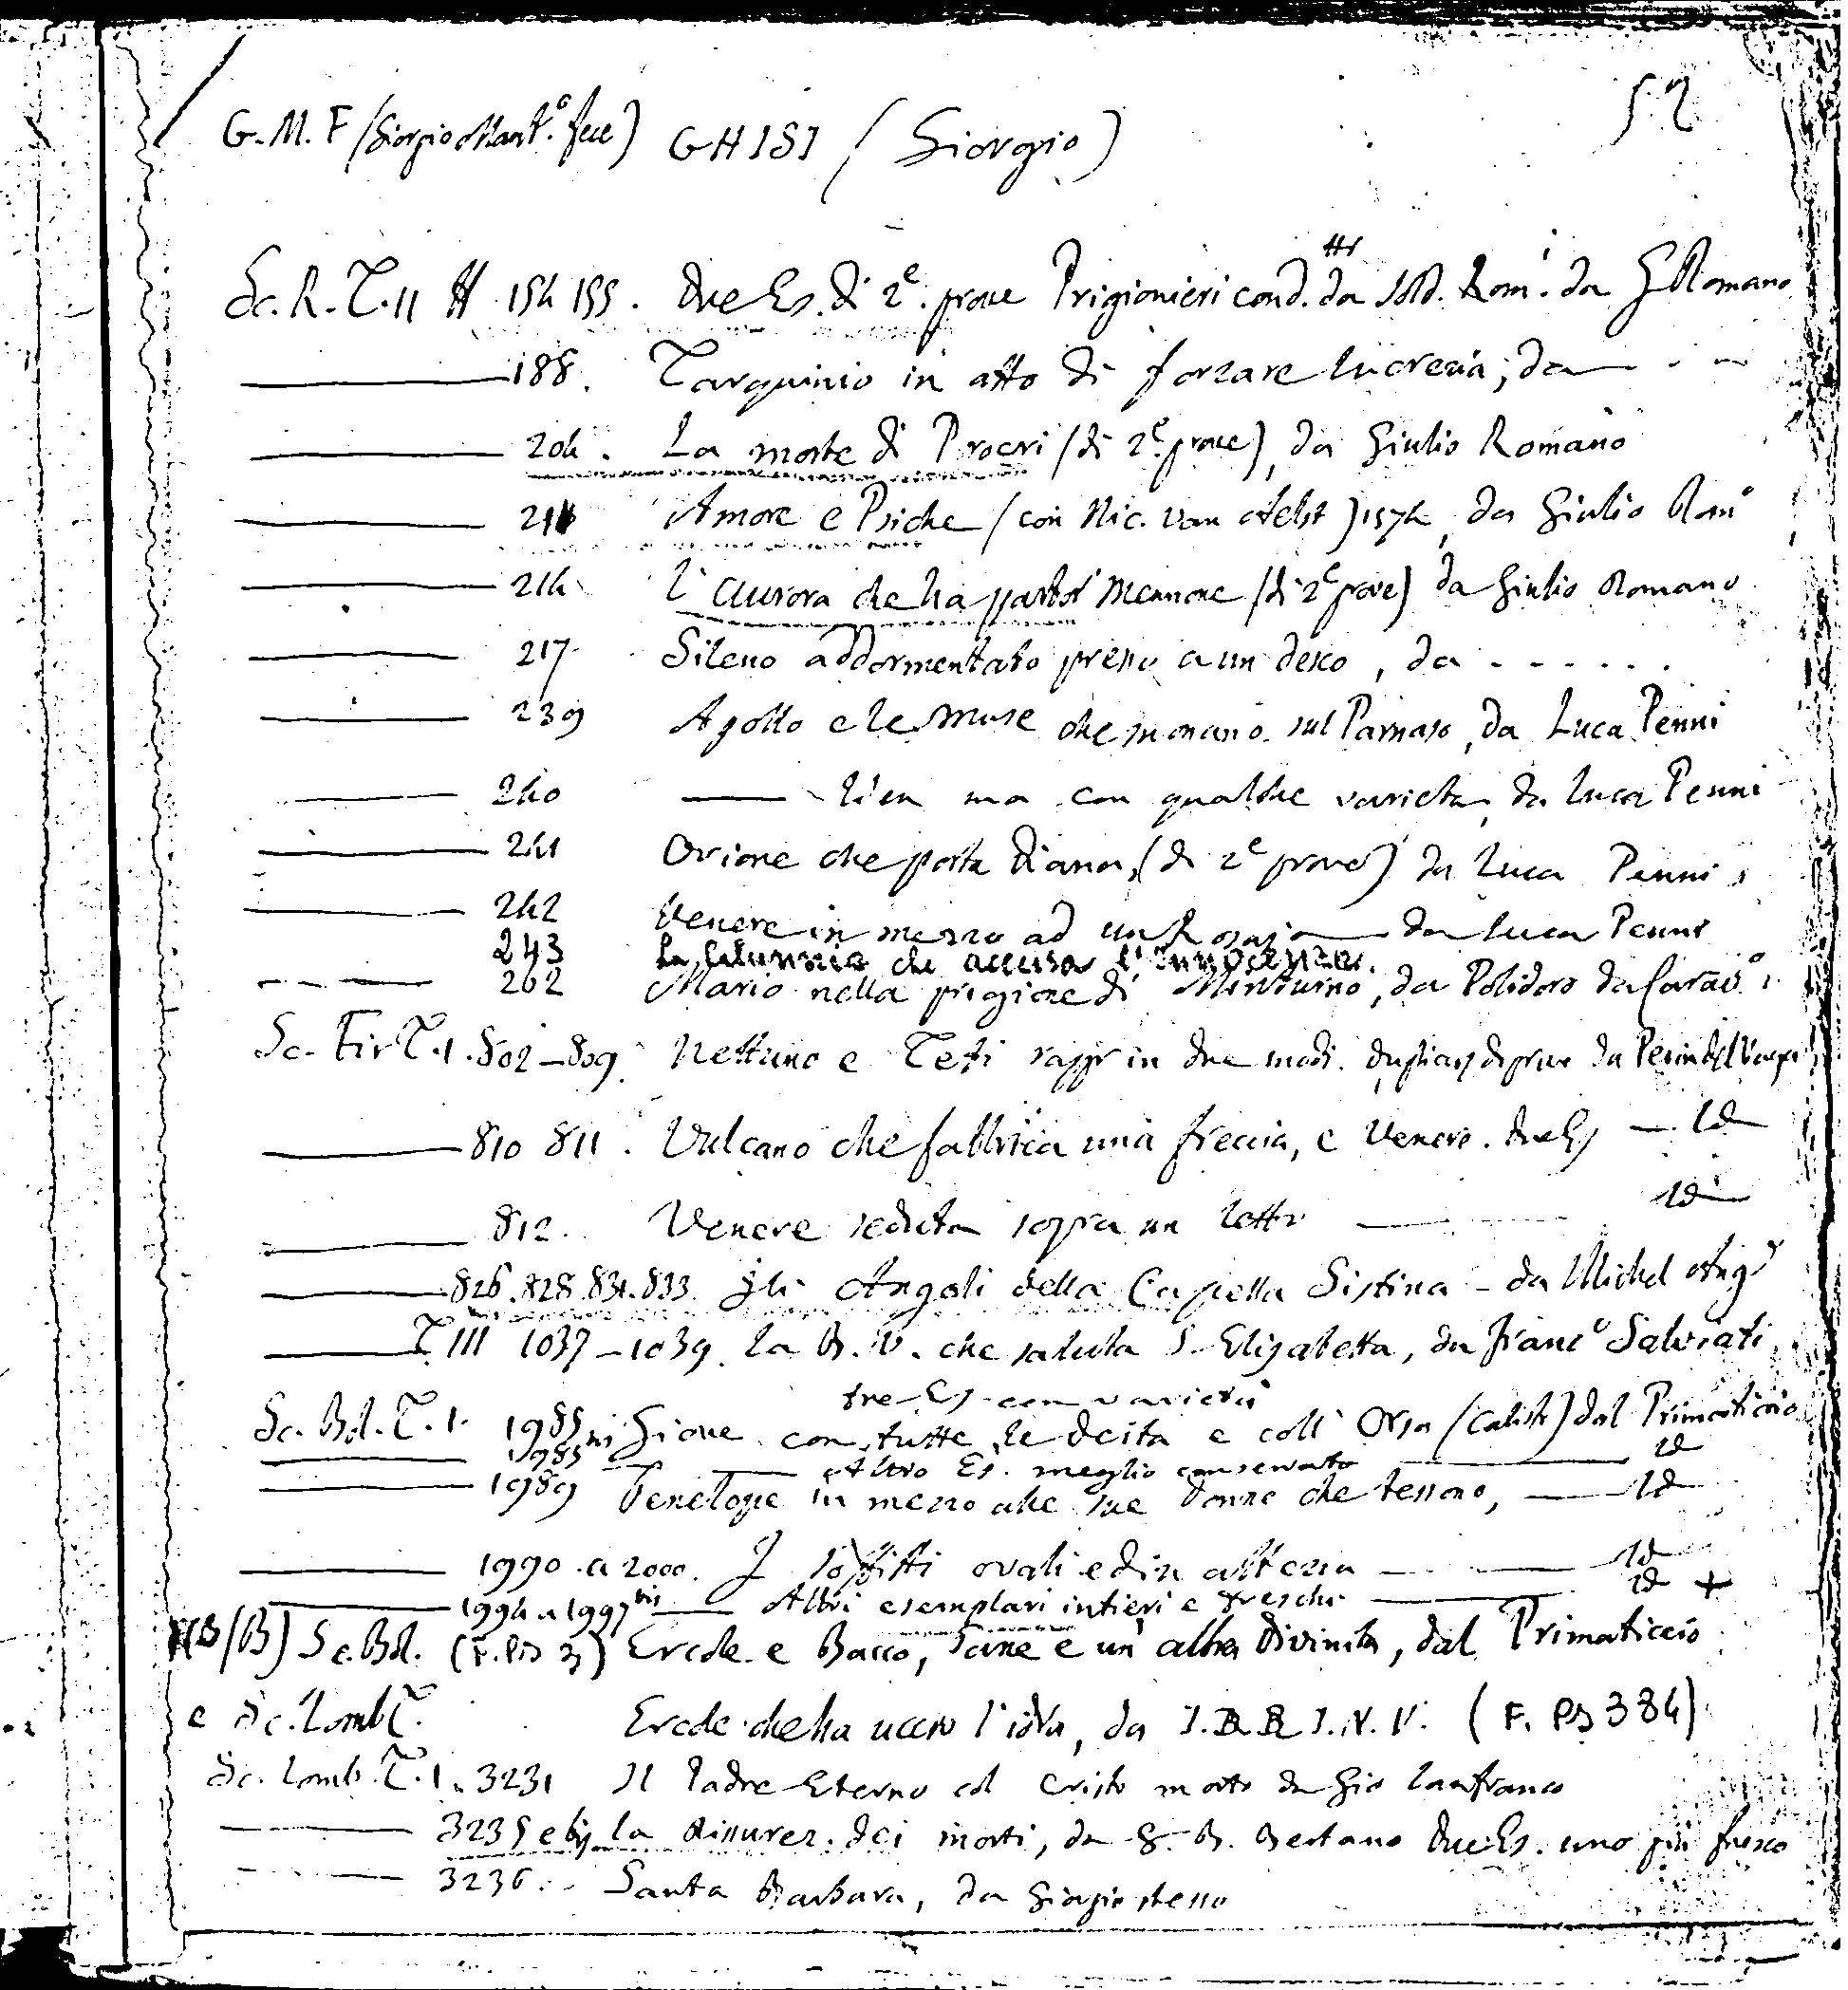 52
G. M. F (Giorgio Mant.º fece) GHISI (Giorgio)
Sc. R. T. II # 154 155. due Es. di 2e. prove Prigionieri cond. da sold. Romi. da G Romano
188. Tarquinio in atto di forzare Lucrezia, da — - -
204. La morte di Procri (di 2e prove), da Giulio Romano
211 Amore e Psiche (con Nic. van Aelst) 1574, da Giulio Romº
214 L'aurora che ha partor Mennone (di 2e prove) da Giulio Romano
217 Sileno addormentato presso a un desco, da - - - - - -
239 Apollo e le Muse che suonano sul Parnaso, da Luca Penni
240 — Idem ma con qualche varietà, da Luca Penni
241 Orione che porta Diana, (di 2e prove) da Luca Penni
242 Venere in mezzo ad un Rosajo — da Luca Penni
243 La Calunnia che accusa l'Innocenza.
262 Mario nella prigione di Minturno, da Polidoro da Caravº
Sc. Fir T. I. 802-809. Nettuno e Teti rappr in due modi. duplicaz di prove da Perin del Vaga
810 811. Vulcano che fabbrica una freccia, e Venere. due Es — Id
812. Venere seduta sopra un letto — Id
826. 828. 831. 833. Gli Angoli della Capella Sistina - da Michel Angº
T. III 1037-1039. La B. V. che saluta S. Elisabetta, da Francº Salviati
tre Es con varietà
Sc. Bol. T. I. 1985 Giove con tutte le Deità e coll'Orsa (Calisto) dal Primaticcio
1985 bis — — Altro Es. meglio conservato — Id
1989 Penelope in mezzo alle sue donne che tessono, — Id
1990 a 2000. I soffitti ovali ed in altezza — Id
1994 a 1997 bis — Altri esemplari intieri e freschi — Id +
(B) Sc. Bol. (F. PB 3) Ercole e Bacco, Pane e un'altra Divinità, dal Primaticcio
e Sc. Lomb T. Ercole che ha ucciso l'idra, da I. B. B I. N. V. (F. PB 384)
Sc. Lomb. T. I. 3231 Il Padre Eterno col Cristo morto da Gio Lanfranco
3235 e bis La Risurrez. dei morti, da G. B. Bertano due Es. uno più fresco
3236. Santa Barbara, da Giorgio stesso